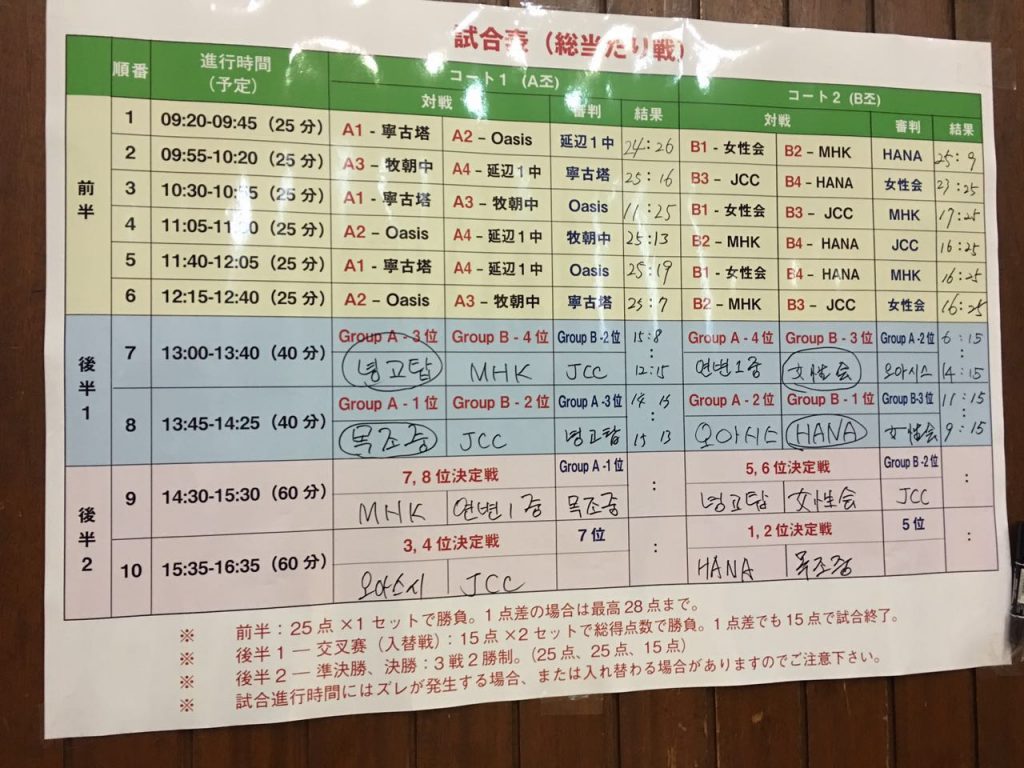 試合表（総当たり戦）
順番 進行時間（予定） コート1 (A조) コート2 (B조)
対戦 審判 結果 対戦 審判 結果
前半
1 09:20-09:45（25分） A1 - 寧古塔 A2 – Oasis 延辺1中 24:26 B1 - 女性会 B2 – MHK HANA 25:9
2 09:55-10:20（25分） A3 - 牧朝中 A4 - 延辺1中 寧古塔 25:16 B3 – JCC B4 - HANA 女性会 27:25
3 10:30-10:55（25分） A1 - 寧古塔 A3 - 牧朝中 Oasis 11:25 B1 - 女性会 B3 – JCC MHK 17:25
4 11:05-11:30（25分） A2 – Oasis A4 - 延辺1中 牧朝中 25:13 B2 – MHK B4 – HANA JCC 16:25
5 11:40-12:05（25分） A1 - 寧古塔 A4 - 延辺1中 Oasis 25:19 B1 - 女性会 B4 – HANA MHK 16:25
6 12:15-12:40（25分） A2 – Oasis A3 - 牧朝中 寧古塔 25:7 B2 – MHK B3 – JCC 女性会 16:25
後半1
7 13:00-13:40（40分） Group A - 3位 Group B - 4位 Group B -2位 15:8 Group A - 4位 Group B - 3位 Group A -2位 6:15
녕고탑 MHK JCC 12:15 연변1중 女性会 오아시스 14:15
8 13:45-14:25（40分） Group A - 1位 Group B - 2位 Group A -3位 14 15 Group A - 2位 Group B - 1位 Group B-3位 11:15
목조중 JCC 녕고탑 15 13 오아시스 HANA 女性会 9:15
後半2
9 14:30-15:30（60分） 7, 8位決定戦 Group A -1位 : 5, 6位決定戦 Group B -2位 :
MHK 연변1중 목조중 녕고탑 女性会 JCC
10 15:35-16:35（60分） 3, 4位決定戦 7位 : 1, 2位決定戦 5位 :
오아스시 JCC HANA 목조중
※ 前半：25点×1セットで勝負。1点差の場合は最高28点まで。
※ 後半1 — 交叉賽（入替戦）：15点×2セットで総得点数で勝負。1点差でも15点で試合終了。
※ 後半2 — 準決勝、決勝：3戦2勝制。（25点、25点、15点）
※ 試合進行時間にはズレが発生する場合、または入れ替わる場合がありますのでご注意下さい。